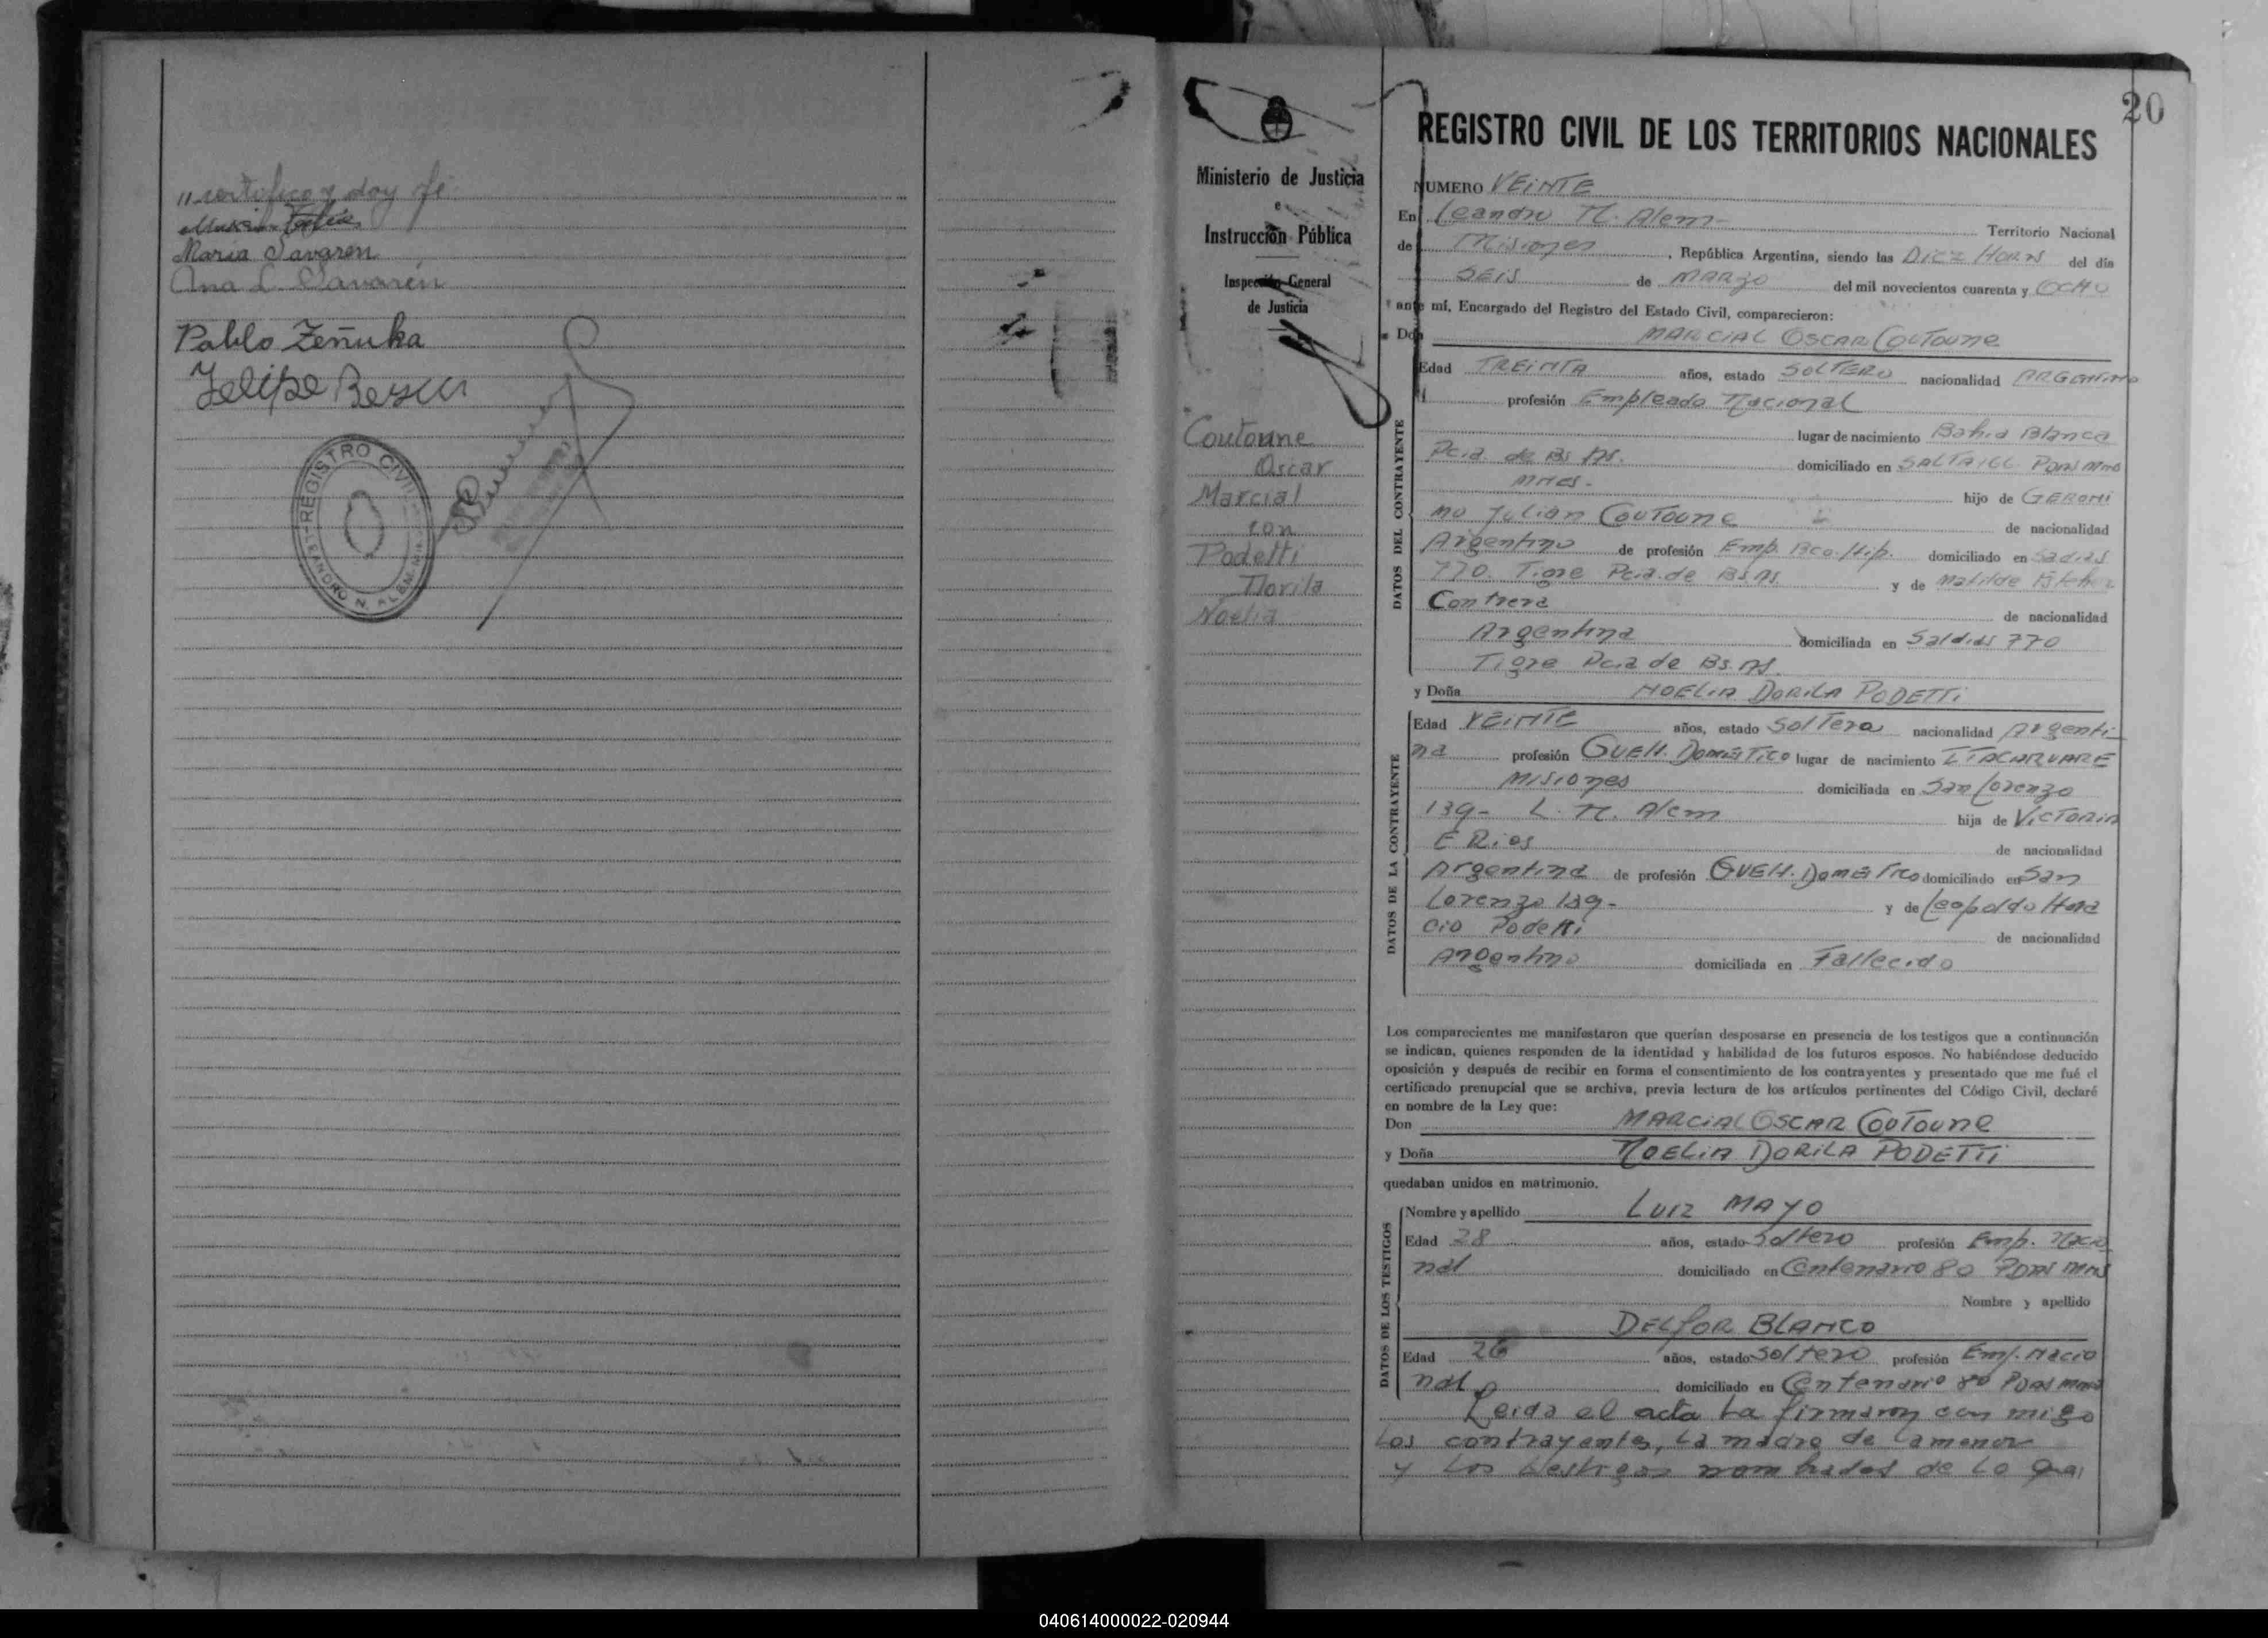 " certifico y doy fe
Maria Savaren
Ana L. Savarén
Pablo Zeñuka
Felipe
REGISTRO CIVIL
LEANDRO N. ALEM-MIS.
20
Ministerio de Justicia
e
Instrucción Pública
Inspección General
de Justicia
Coutoune
Oscar
Marcial
con
Podetti
Dorila
Noelia
REGISTRO CIVIL DE LOS TERRITORIOS NACIONALES
NUMERO VEINTE
En Leandro N. Alem - Territorio Nacional
de Misiones, República Argentina, siendo las DIEZ HORAS del día
SEIS de MARZO del mil novecientos cuarenta y OCHO
ante mí, Encargado del Registro del Estado Civil, comparecieron:
Don MARCIAL OSCAR COUTOUNE
DATOS DEL CONTRAYENTE
Edad TREINTA años, estado SOLTERO nacionalidad ARGENTINO
profesión Empleado Nacional
lugar de nacimiento Bahia Blanca
Pcia. de Bs As. domiciliado en SALTA 166 Pdas Mnes
hijo de GERONI
mo Julian COUTOUNE de nacionalidad
Argentino de profesión Emp. Bco. Hip. domiciliado en
770. Tigre Pcia. de Bs As y de Matilde
Contrera de nacionalidad
Argentina domiciliada en Saldias 770
Tigre Pcia de Bs. As.
y Doña NOELIA DORILA PODETTI
DATOS DE LA CONTRAYENTE
Edad VEINTE años, estado Soltera nacionalidad Argenti-
na profesión QUEH. DoméSTico lugar de nacimiento ITACARUARE
Misiones domiciliada en San Lorenzo
139- L. N. Alem hija de VICTORIA
E Rios de nacionalidad
Argentina de profesión QUEH. DoméSTico domiciliado en San
Lorenzo 139- y de Leopoldo Hora
cio Podetti de nacionalidad
Argentino domiciliada en Fallecido
Los comparecientes me manifestaron que querían desposarse en presencia de los testigos que a continuación
se indican, quienes responden de la identidad y habilidad de los futuros esposos. No habiéndose deducido
oposición y después de recibir en forma el consentimiento de los contrayentes y presentado que me fué el
certificado prenupcial que se archiva, previa lectura de los artículos pertinentes del Código Civil, declaré
en nombre de la Ley que:
Don MARCIAL OSCAR COUTOUNE
y Doña NOELIA DORILA PODETTI
quedaban unidos en matrimonio.
DATOS DE LOS TESTIGOS
Nombre y apellido LUIZ MAYO
Edad 28 años, estado Soltero profesión Emp. Nacio
nal domiciliado en Centenario 80 Pdas Mns
Nombre y apellido
DELFOR BLANCO
Edad 26 años, estado Soltero profesión Emp. Nacio
nal domiciliado en Centenario 80 Pdas Mnes
Leida el acta la firmaron con migo
los contrayentes, la madre de la menor
y los testigos nombrados de lo que
040614000022-020944